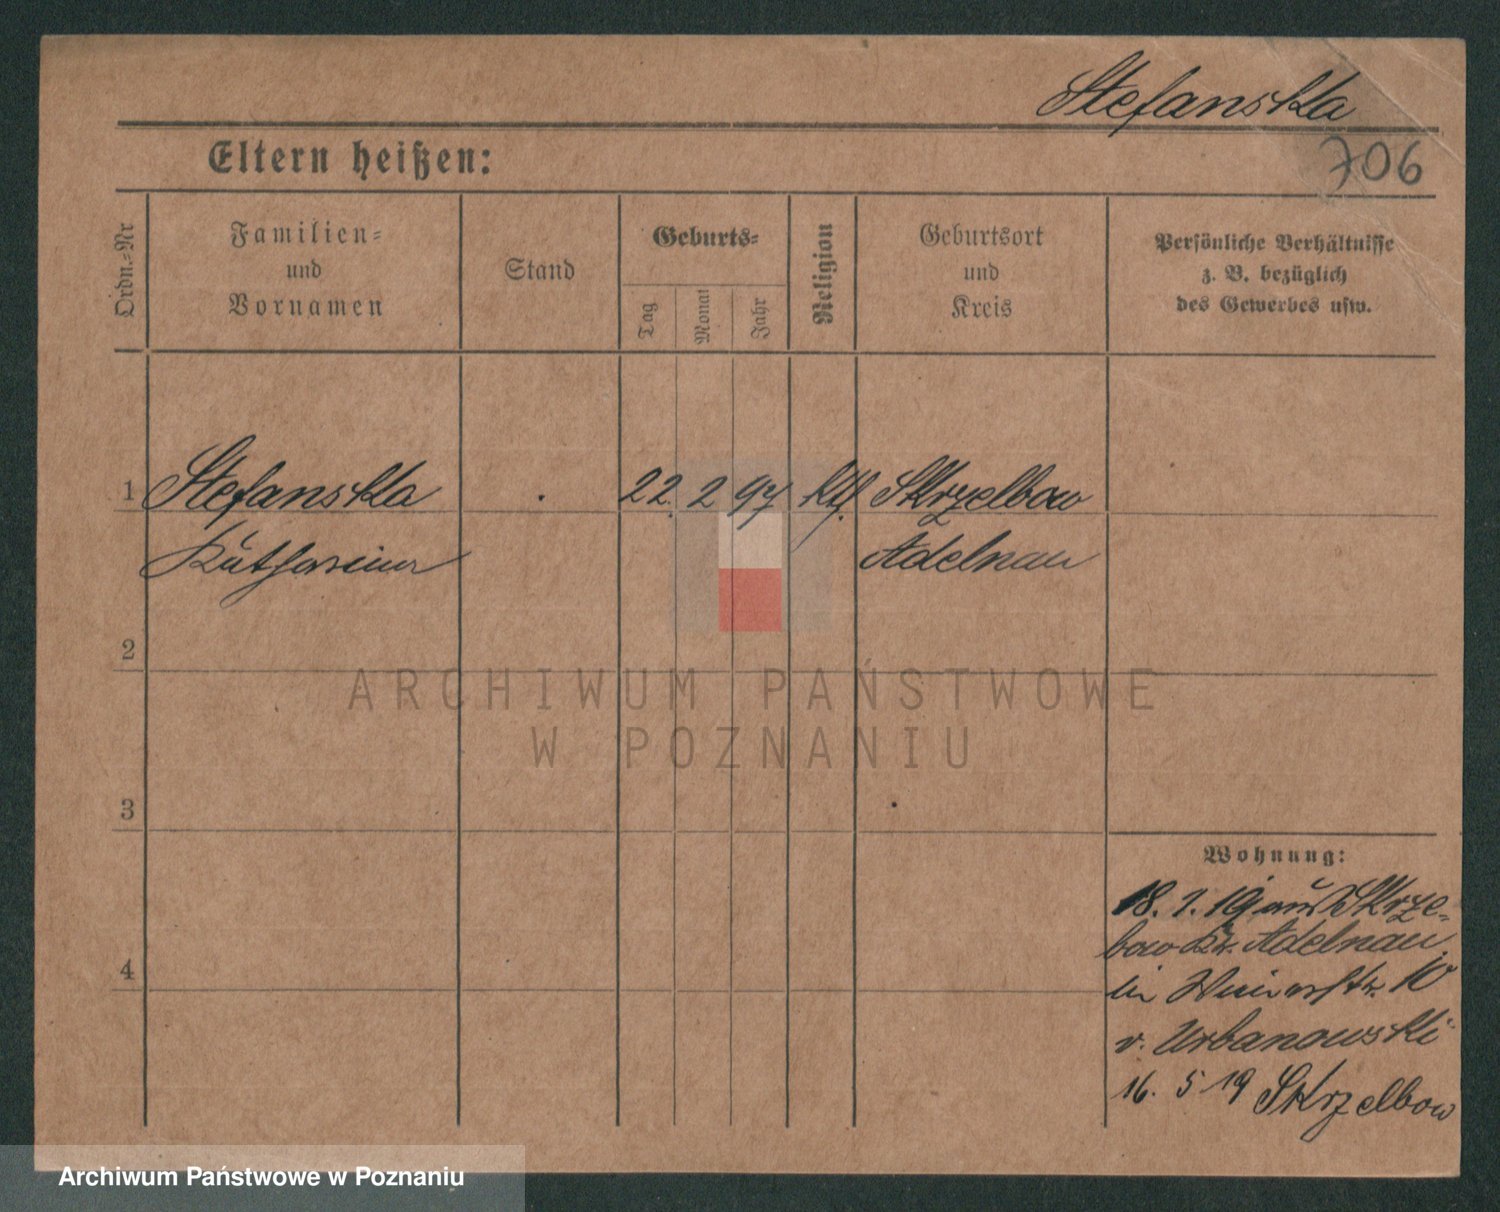 Stefanska
706
Eltern heißen:
Ordn.-Nr
Familien-
und
Vornamen
Stand
Geburts-
Tag
Monat
Jahr
Religion
Geburtsort
und
Kreis
Persönliche Verhältnisse
z. B. bezüglich
des Gewerbes usw.
1 Stefanska . 22. 2 97 kth. Skrzelbow
Katharina Adelnau
2
3
4
Wohnung:
18. 1. 19 aus Skrze-
bow Kr. Adelnau
bei 10
v. Urbanowski
16. 5 19 Skrzelbow
ARCHIWUM PAŃSTWOWE
W POZNANIU
Archiwum Państwowe w Poznaniu